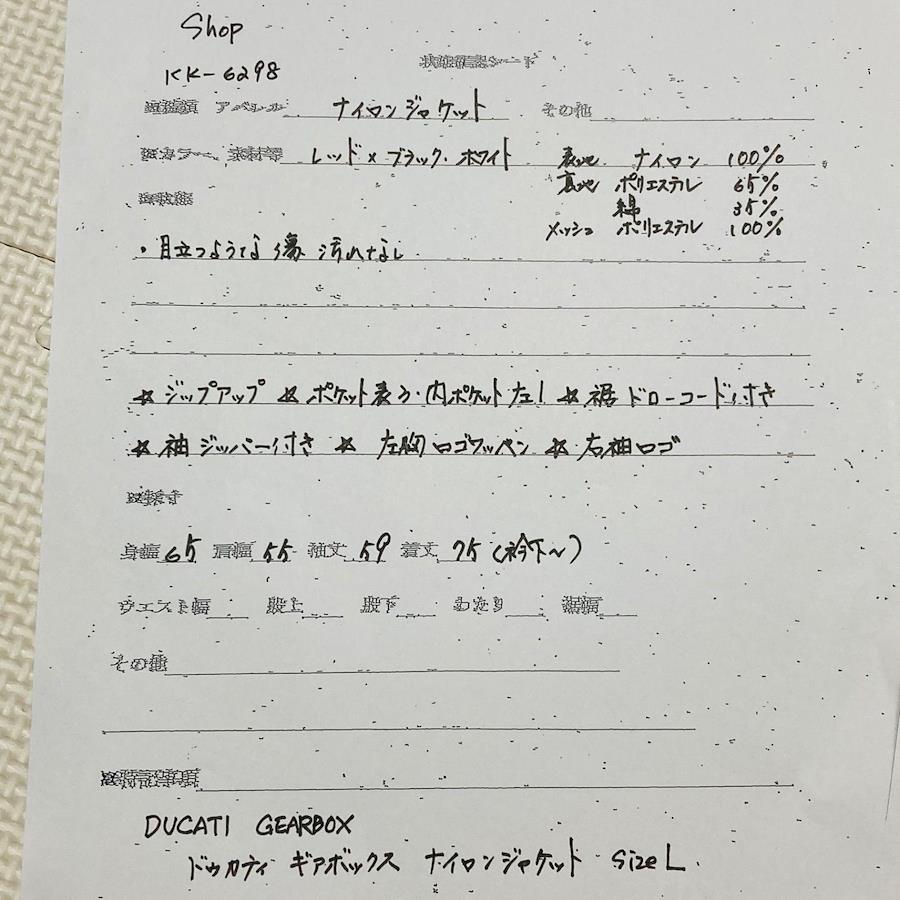 Shop
KK-6298
状態確認シート
アパレル ナイロンジャケット その他
カラー、素材等 レッド×ブラック・ホワイト 表地 ナイロン 100%
裏地 ポリエステル 65%
綿 35%
メッシュ ポリエステル 100%
・目立つような傷 汚れなし
☆ ジップアップ ☆ ポケット表3・内ポケット左1 ☆ 裾ドローコード付き
☆ 袖ジッパー付き ☆ 左胸ロゴワッペン ☆ 右袖ロゴ
採寸
身幅 65 肩幅 55 袖丈 59 着丈 75(衿下~)
ウエスト幅 股上 股下 わたり 裾幅
その他
DUCATI GEARBOX
ドゥカティ ギアボックス ナイロンジャケット Size L